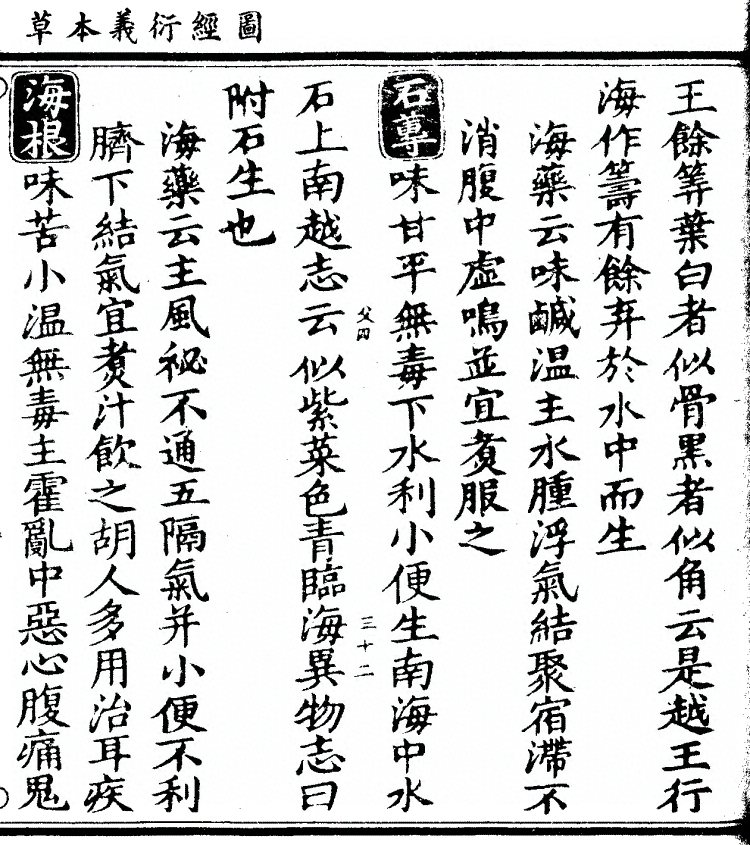 圖經衍義本草
王餘筭葉白者似骨黑者似角云是越王行
海作籌有餘弃於水中而生
海藥云味鹹温主水腫浮氣結聚宿滯不
消腹中虛鳴並宜煑服之
石蓴味甘平無毒下水利小便生南海中水
父四 三十二
石上南越志云似紫菜色青臨海異物志曰
附石生也
海藥云主風祕不通五隔氣并小便不利
臍下結氣宜煑汁飲之胡人多用治耳疾
海根味苦小温無毒主霍亂中惡心腹痛鬼